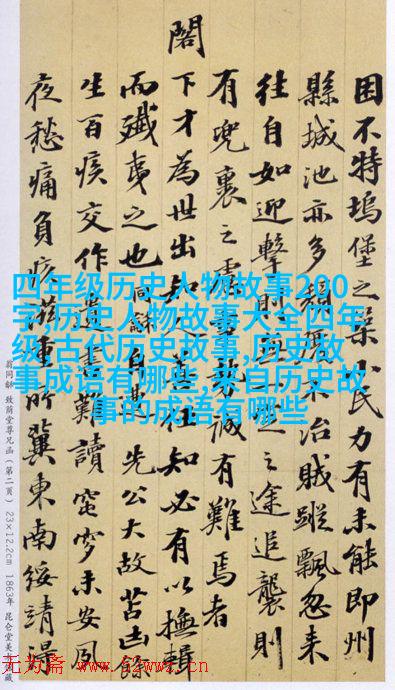 困不特塢堡之築小民力有未能即州
縣城池亦多未治賊蹤飄忽来
往自如迎擊則之途追襲則
有兜裹之虞誠有難焉者
閣下才為世出知人善任知必有以撫輯
而殲夷之也同龢自遭先公大故苫凷餘
生百疾交作遺書難讀窀穸未安夙
夜愁痛負疚滋重所冀東南綏靖得
四年级历史人物故事200
字,历史人物故事大全四年
级,古代历史故事,历史故
事成语有哪些,来自历史故
事的成语有哪些
翁同龢 致蔭堂尊兄函(第二頁) 23×12.2cm 1863年 昆仑堂美术馆藏
无为斋